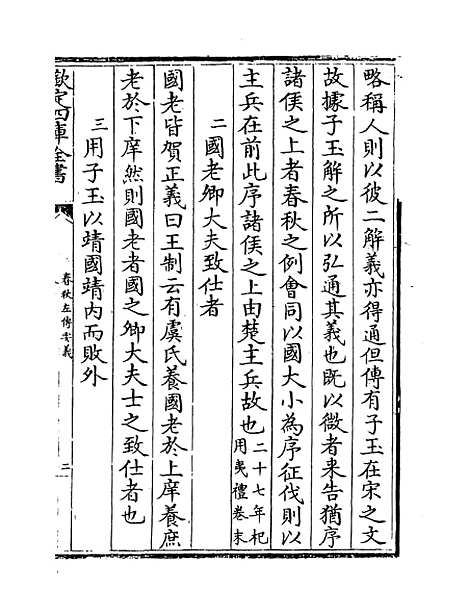 略稱人則以彼二解義亦得通但傳有子玉在宋之文
故據子玉解之所以弘通其義也既以微者来告猶序
諸侯之上者春秋之例會同以國大小為序征伐則以
主兵在前此序諸侯之上由楚主兵故也二十七年杞
用夷禮卷末
二國老卿大夫致仕者
國老皆賀正義曰王制云有虞氏養國老於上庠養庶
老於下庠然則國老者國之卿大夫士之致仕者也
三用子玉以靖國靖内而敗外
欽定四庫全書
春秋左傳要義
二